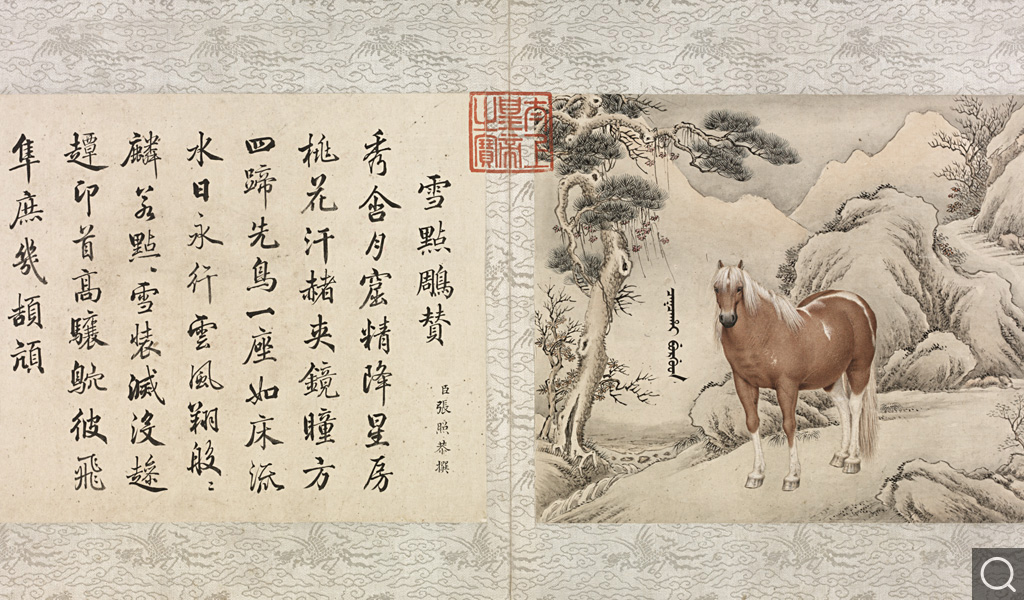 太上皇帝之寶
雪點鵰贊
臣張照恭撰
秀含月窟精降星房
桃花汗赭夾鏡瞳方
四蹄先鳥一座如床流
水日永行雲風翔般〻
麟若點〻雪裝滅沒
卬首高驤鴥彼飛
隼庶幾頡頏